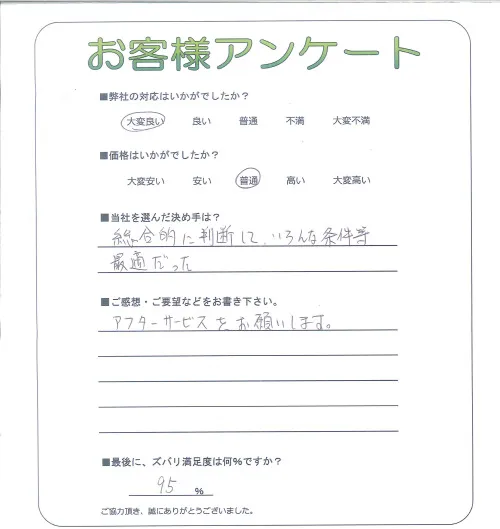 お客様アンケート
■弊社の対応はいかがでしたか?
大変良い 良い 普通 不満 大変不満
■価格はいかがでしたか?
大変安い 安い 普通 高い 大変高い
■当社を選んだ決め手は?
総合的に判断して、いろんな条件等
最適だった
■ご感想・ご要望などをお書き下さい。
アフターサービスをお願いします。
■最後に、ズバリ満足度は何%ですか?
95 %
ご協力頂き、誠にありがとうございました。